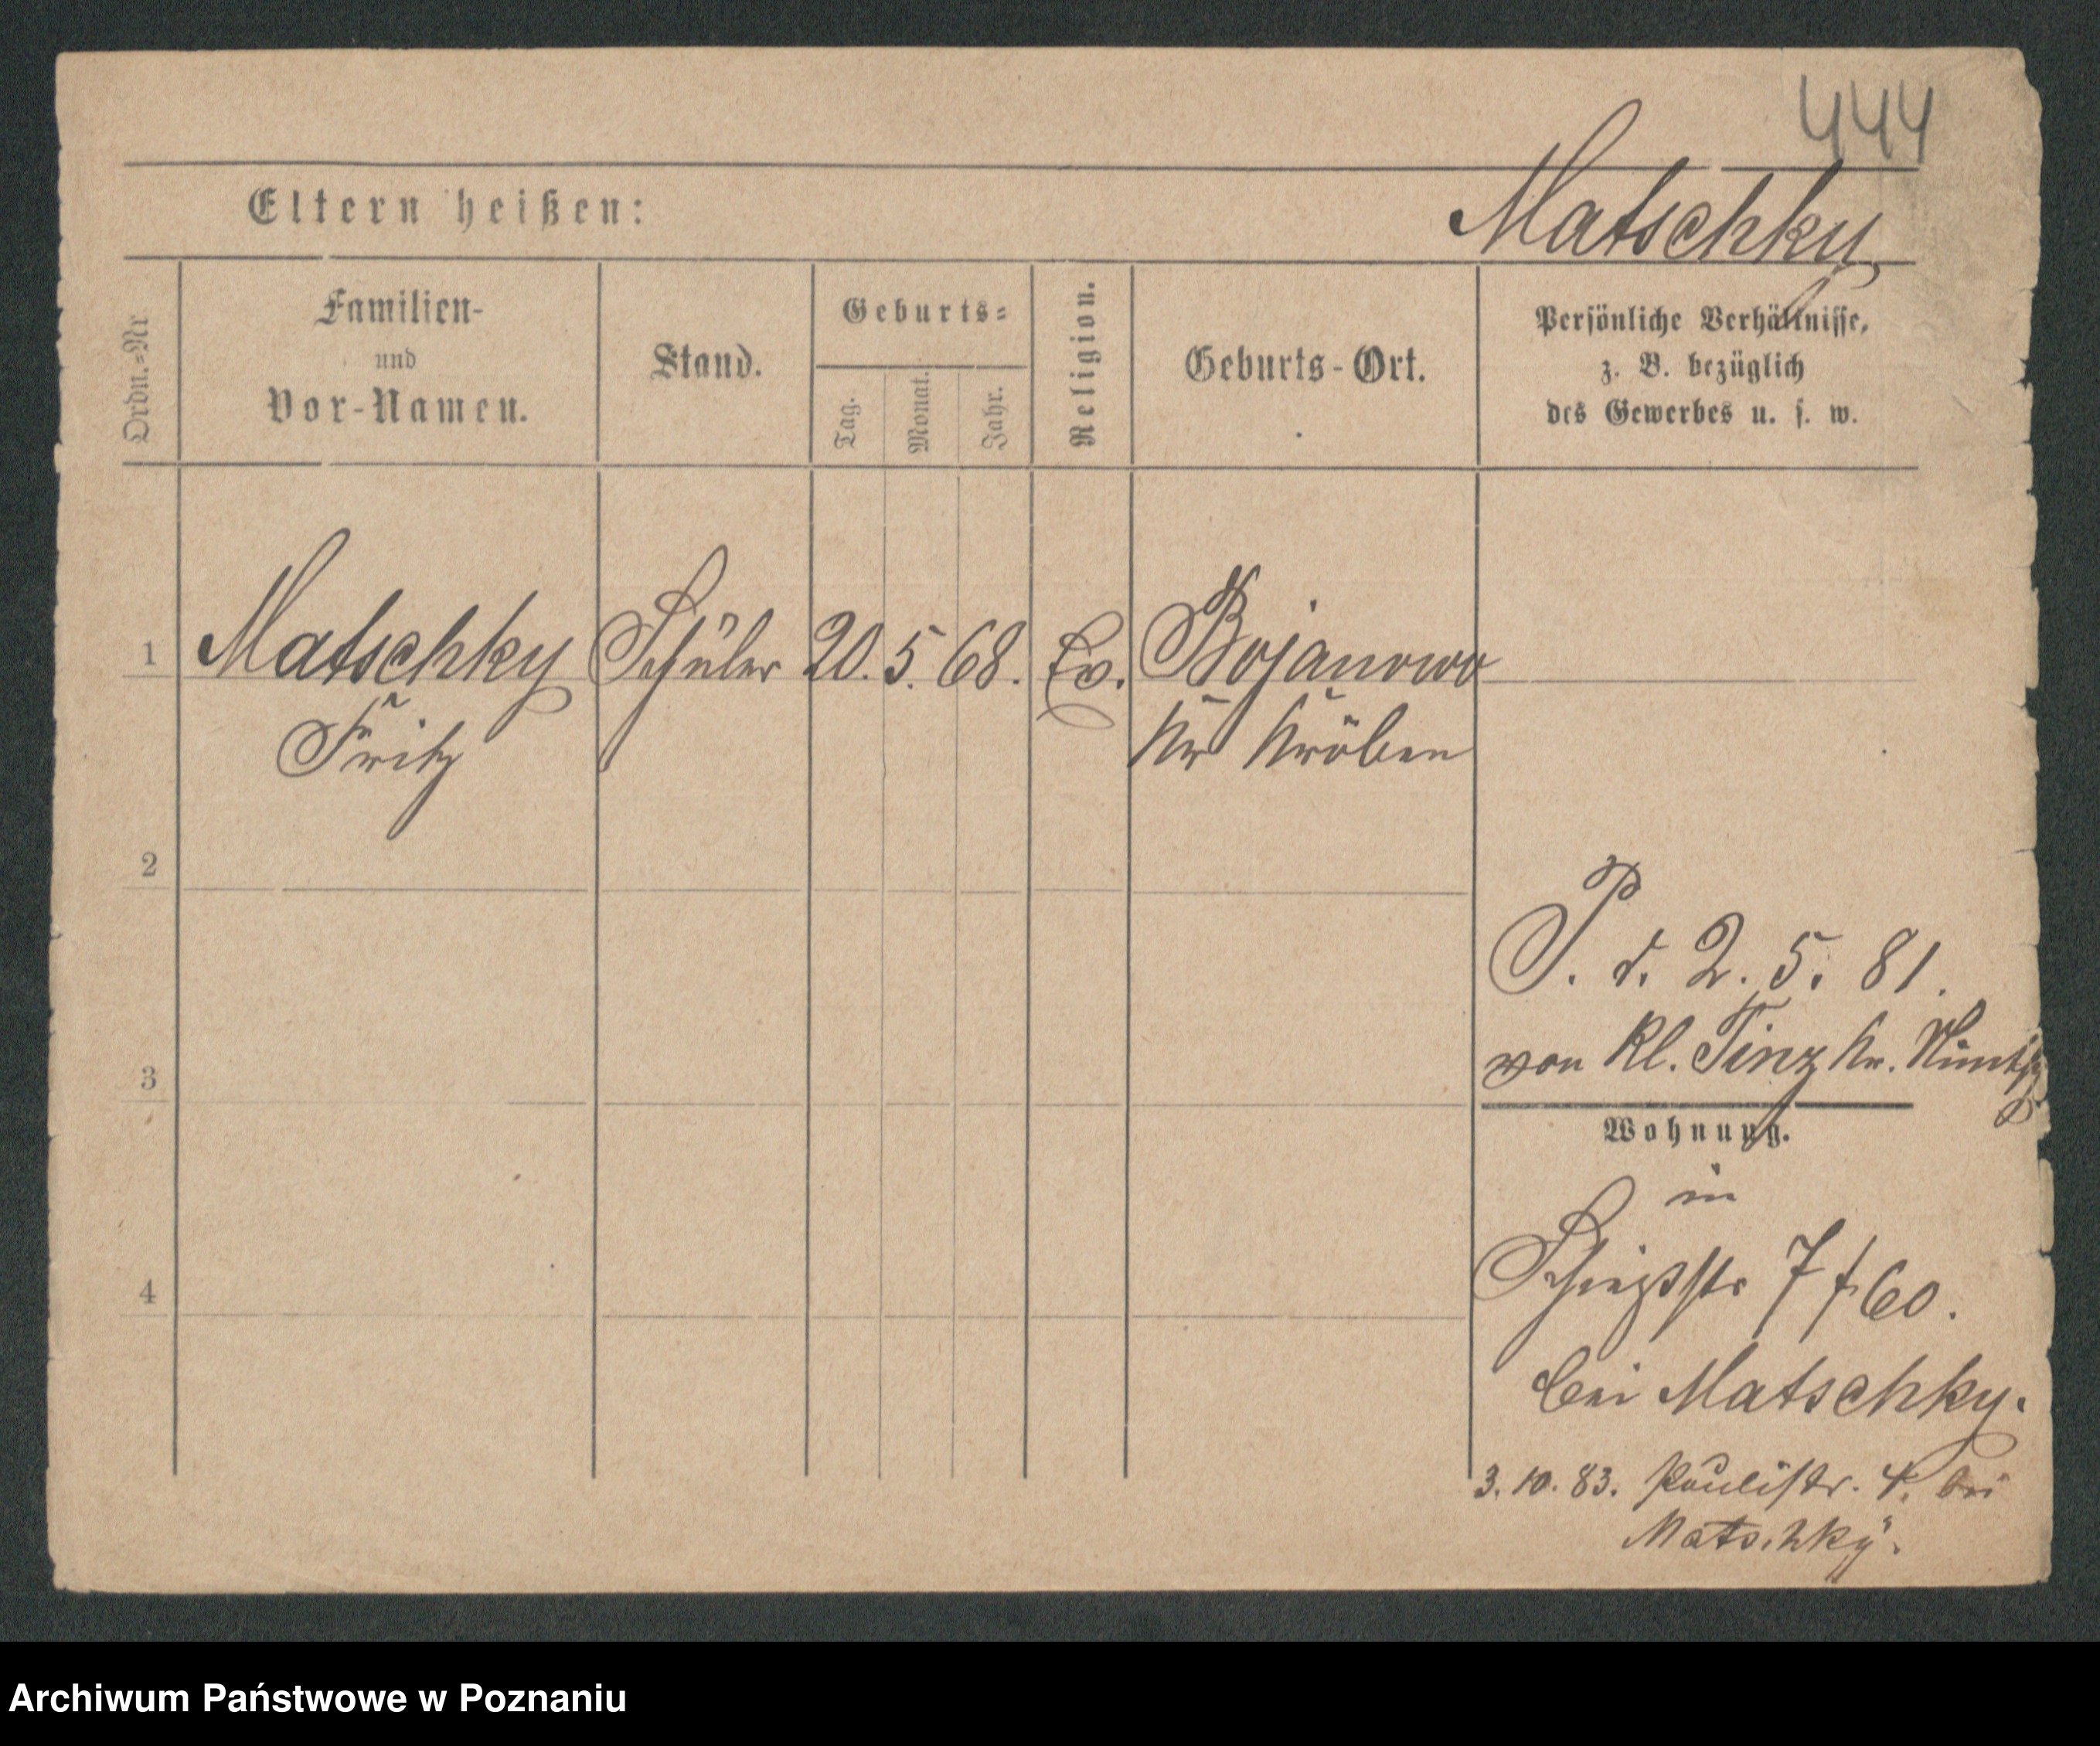 444
Matschky
Eltern heißen:
Ordn.-Nr
Familien-
und
Vor-Namen.
Stand.
Geburts-
Tag.
Monat.
Jahr.
Religion.
Geburts-Ort.
Persönliche Verhältnisse,
z. B. bezüglich
des Gewerbes u. s. w.
1 Matschky Schüler 20. 5. 68. Ev. Bojanowo
Fritz Kr Kröben
2
3
4
P. d. 2. 5. 81.
von Kl. Tinz Kr.
Wohnung.
in
7 f 60.
bei Matschky.
3. 10. 83. Paulistr. 4. bei
Matschky.
Archiwum Państwowe w Poznaniu